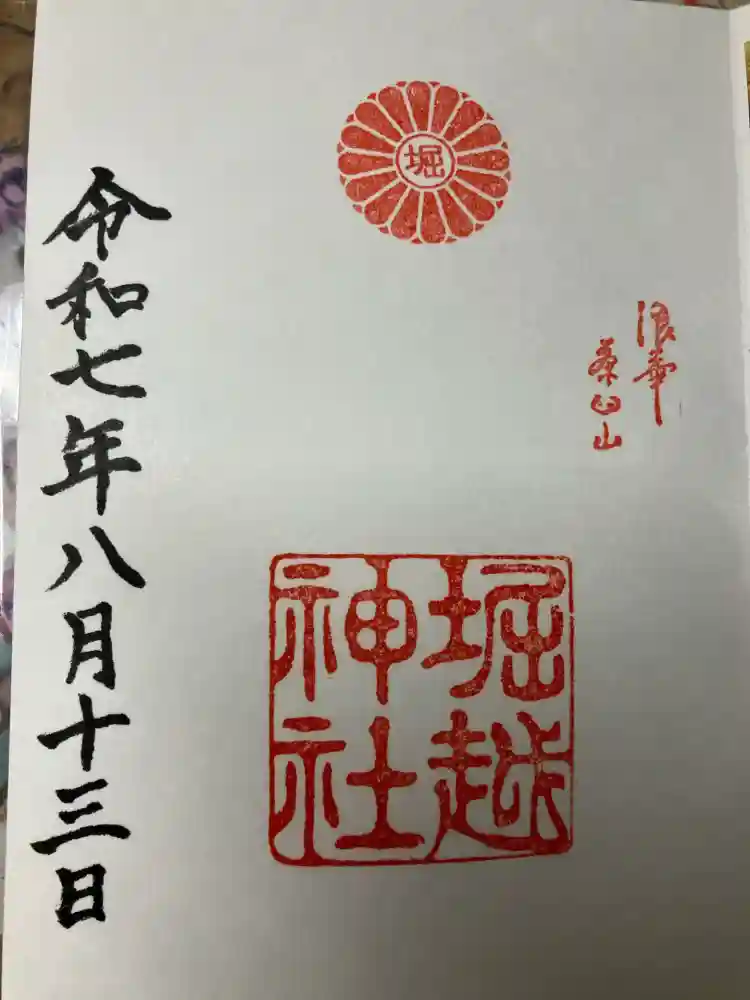 堀
浪華
茶臼山
堀越
神社
令和七年八月十三日